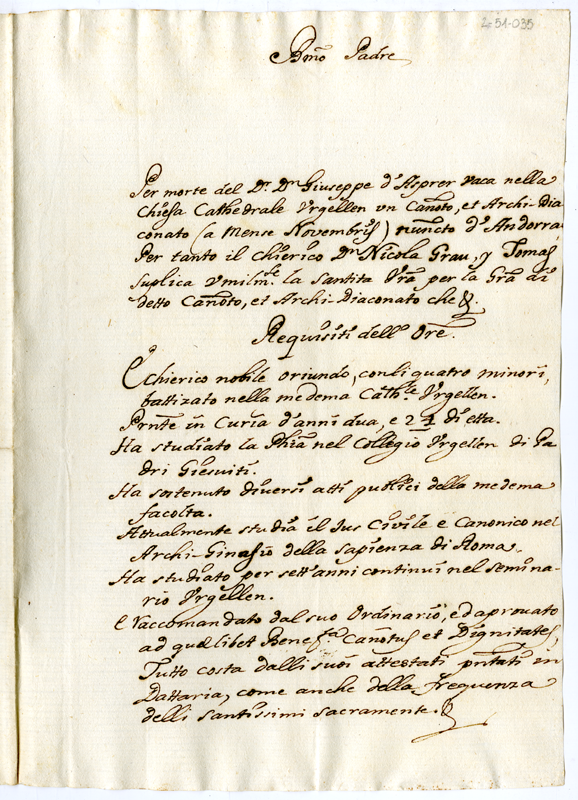 2-51-035
Bmõ Padre
Per morte del Dr. Dn Giuseppe d'Asprer vaca nella
Chiesa Cathedrale Urgellen un Canõto, et Archi-Dia
conato (a Mense Novembris) nuncto d'Andorra
Per tanto il Chierico Dn Nicola Grau, y Tomas
suplica umilmte. la Santita Vrã per la Grã di
detto Canõto, et Archi-Diaconato che &.
Requisiti dell' Ore.
È chierico nobile oriundo, con li quatro minori,
battizato nella medema Cathle Urgellen.
Prnte in Curia d'anni dua, e 24 di età.
Ha studiato la Phia nel Collegio Urgellen di Pa
dri Giesuiti.
Ha sostenuto diversi atti publici della medema
facolta.
Attualmente studia il Jus Civile e Canonico nel
Archi-Ginasio della Sapienza di Roma.
Ha studiato per sett'anni continui nel semina-
rio Urgellen.
È raccomandato dal suo Ordinario, ed aprovato
ad quælibet Benefa. Canõtus et Dignitates,
Tutto costa dalli suoi attestati pñtati in
Dattaria, come anche della frequenza
delli santissimi sacramente.